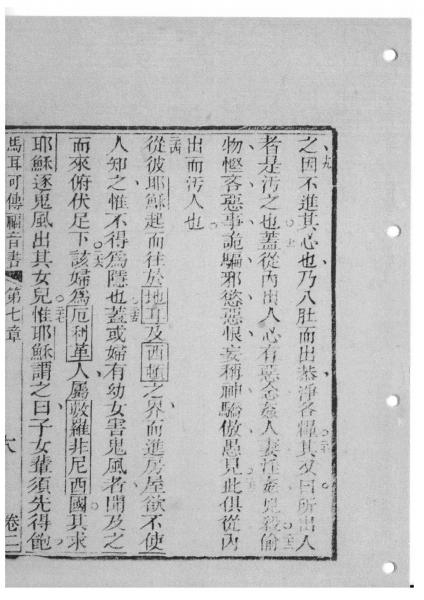 之因不進其心也乃入肚而出恭淨各糧其又曰所出人
者是汚之也蓋從內出人心有惡念姦人妻淫姦兇殺偷
物慳吝惡事詭騙邪慾惡恨妄稱神驕傲愚見此俱從內
出而汚人也
從彼耶穌起而往於地耳及西頓之界而進房屋欲不使
人知之惟不得為隱也蓋或婦有幼女害鬼風者聞及之
而來俯伏足下該婦為厄利革人屬敘羅非尼西國其求
耶穌逐鬼風出其女兒惟耶穌謂之曰子女輩須先得飽
馬耳可傳福音書 第七章 六 卷二